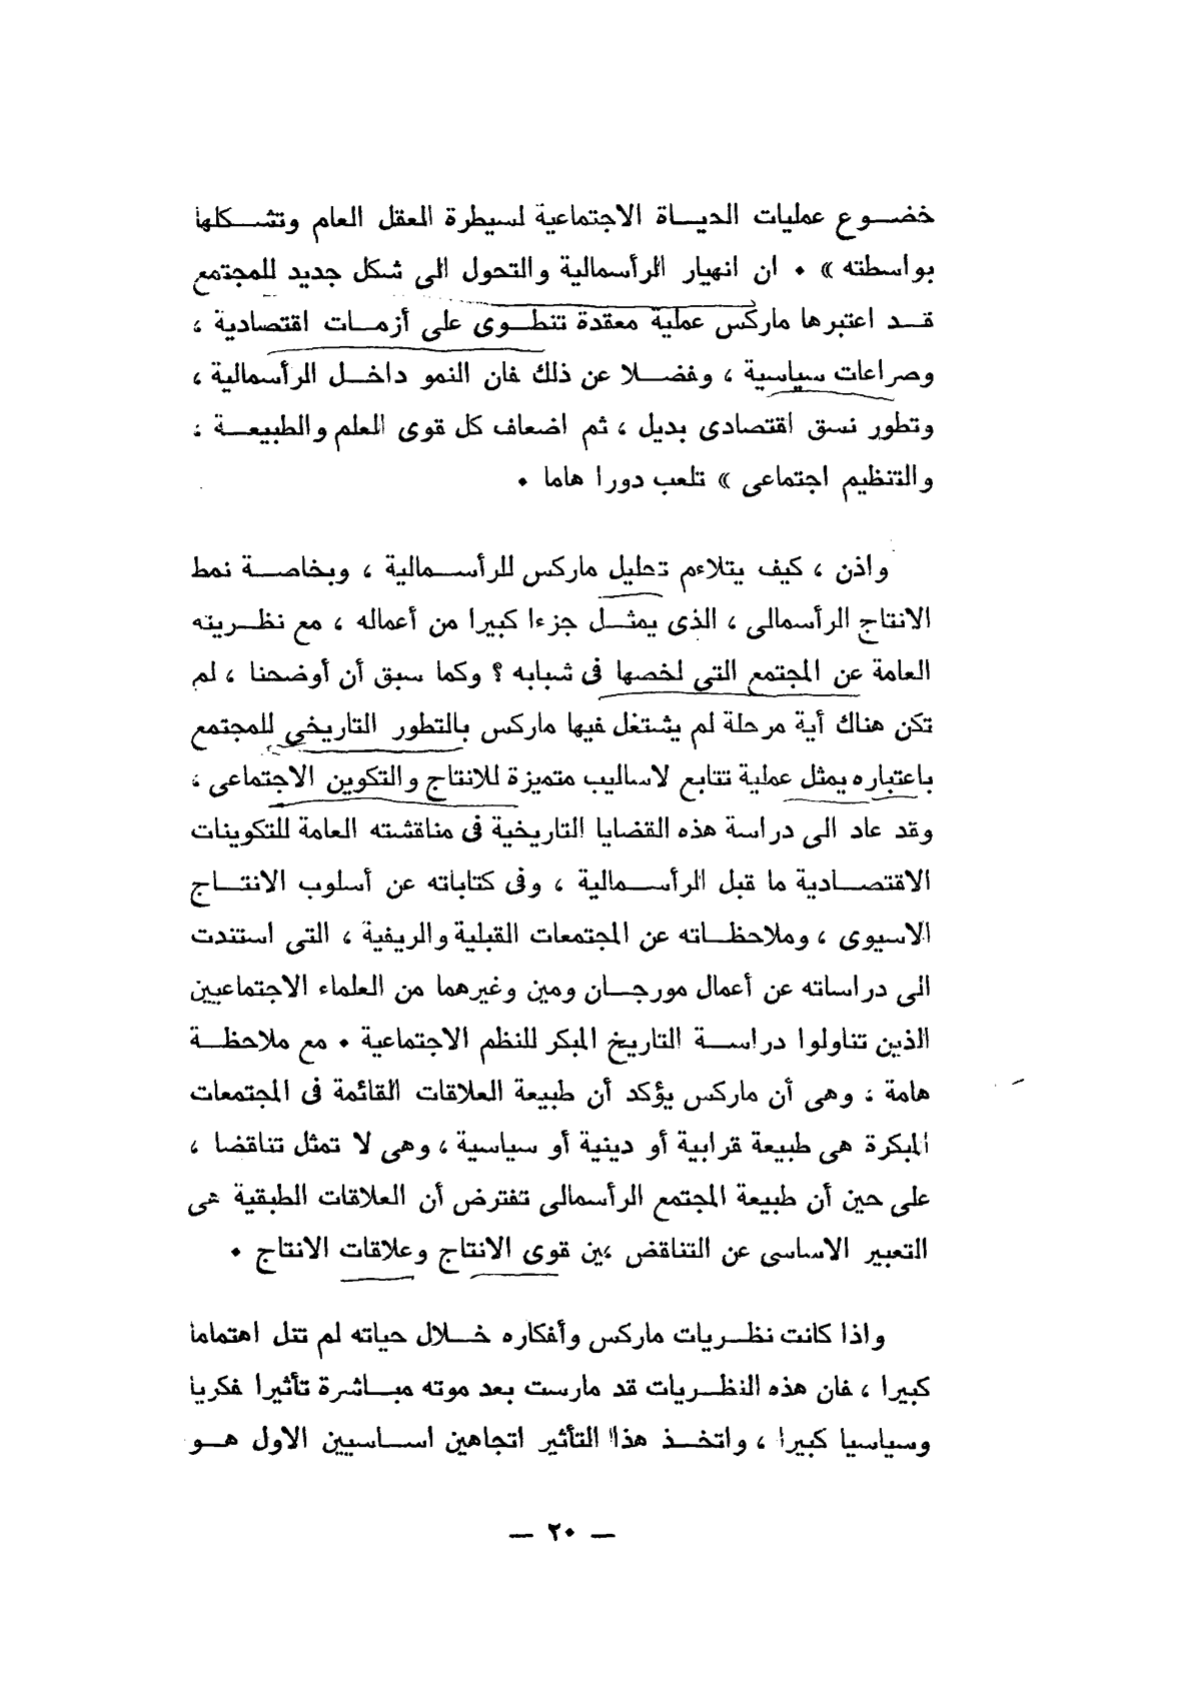 خضوع عمليات الحياة الاجتماعية لسيطرة العقل العام وتشكلها
بواسطته » ٠ ان انهيار الرأسمالية والتحول الى شكل جديد للمجتمع
قد اعتبرها ماركس عملية معقدة تنطوى على أزمات اقتصادية ،
وصراعات سياسية ، وفضلا عن ذلك فان النمو داخل الرأسمالية ،
وتطور نسق اقتصادى بديل ، ثم اضعاف كل قوى العلم والطبيعة ،
والتنظيم اجتماعى » تلعب دورا هاما ٠
واذن ، كيف يتلاءم تحليل ماركس للرأسمالية ، وبخاصة نمط
الانتاج الرأسمالى ، الذى يمثل جزءا كبيرا من أعماله ، مع نظريته
العامة عن المجتمع التى لخصها فى شبابه ؟ وكما سبق أن أوضحنا ، لم
تكن هناك أية مرحلة لم يشتغل فيها ماركس بالتطور التاريخى للمجتمع
باعتباره يمثل عملية تتابع لاساليب متميزة للانتاج والتكوين الاجتماعى ،
وقد عاد الى دراسة هذه القضايا التاريخية فى مناقشته العامة للتكوينات
الاقتصادية ما قبل الرأسمالية ، وفى كتاباته عن أسلوب الانتاج
الاسيوى ، وملاحظاته عن المجتمعات القبلية والريفية ، التى استندت
الى دراساته عن أعمال مورجان ومين وغيرهما من العلماء الاجتماعيين
الذين تناولوا دراسة التاريخ المبكر للنظم الاجتماعية ٠ مع ملاحظة
هامة ، وهى أن ماركس يؤكد أن طبيعة العلاقات القائمة فى المجتمعات
المبكرة هى طبيعة قرابية أو دينية أو سياسية ، وهى لا تمثل تناقضا ،
على حين أن طبيعة المجتمع الرأسمالى تفترض أن العلاقات الطبقية هى
التعبير الاساسى عن التناقض بين قوى الانتاج وعلاقات الانتاج ٠
واذا كانت نظريات ماركس وأفكاره خلال حياته لم تنل اهتماما
كبيرا ، فان هذه النظريات قد مارست بعد موته مباشرة تأثيرا فكريا
وسياسيا كبيرا ، واتخذ هذا التأثير اتجاهين اساسيين الاول هو
— ٢٠ —